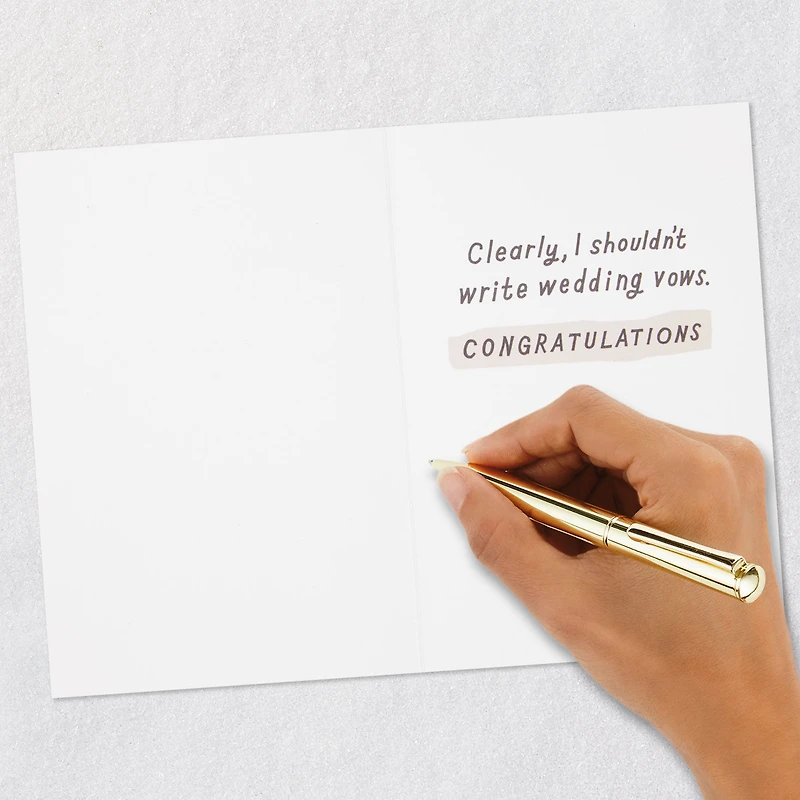 Clearly, I shouldn't
write wedding vows.
CONGRATULATIONS